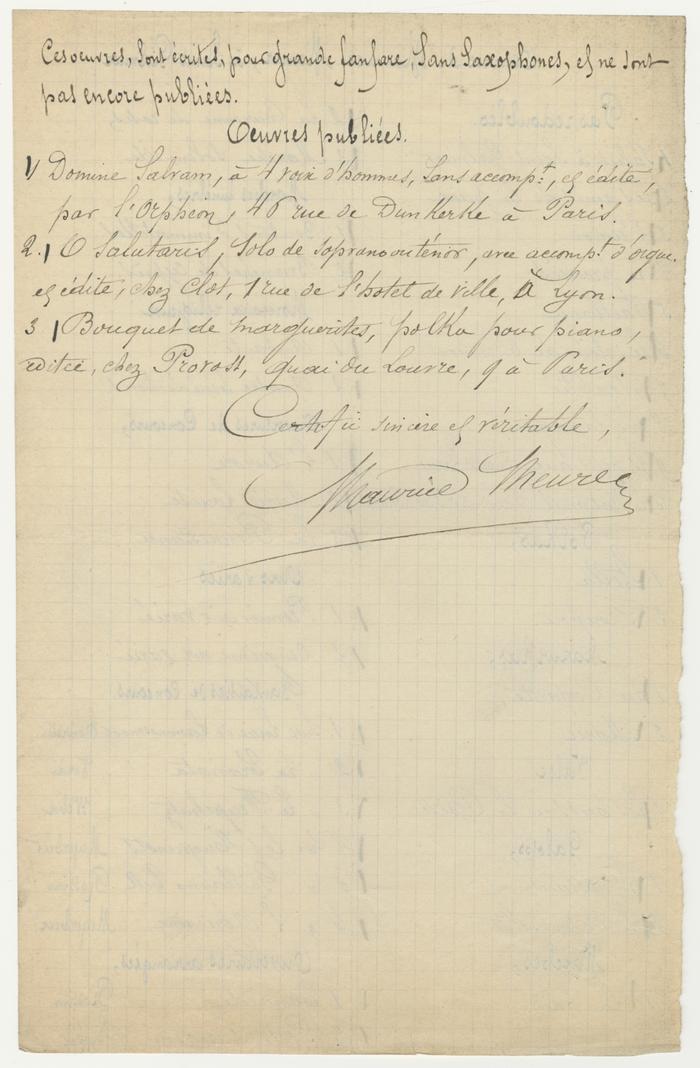 Ces oeuvres, sont écrites, pour grande fanfare, sans saxophones, et ne sont
pas encore publiées.
Oeuvres publiées.
1/ Domine Salvam, à 4 voix d'hommes, sans accompt, est édité,
par l'Orphéon, 46 rue de Dunkerke à Paris.
2./ O Salutaris, Solo de soprano ou ténor, avec accompt d'orgue.
est édité, chez Clot, 1 rue de l'hotel de ville, à Lyon.
3/ Bouquet de marguerites, polka pour piano,
editée, chez Provost, quai du Louvre, 9 à Paris.
Certifié sincère et véritable,
Maurice